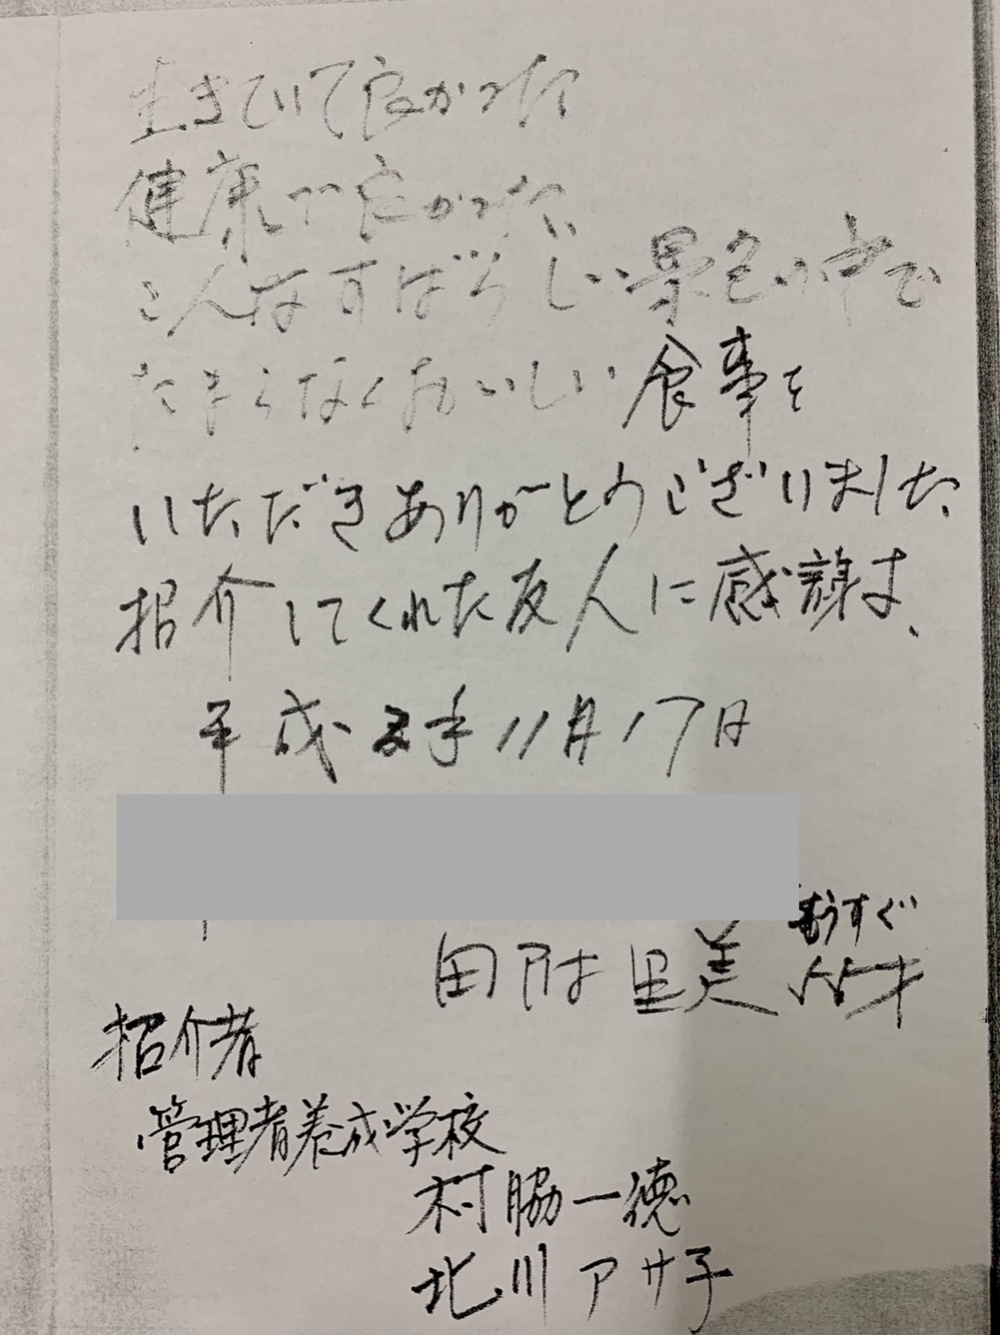 生きていて良かった
健康で良かった、
こんなすばらしい景色の中で
たまらなくおいしい食事を
いただきありがとうございました、
招介してくれた友人に感謝す、
平成 年11月17日
もうすぐ
田附里美 才
招介者
管理者養成学校
村脇一徳
北川アサ子